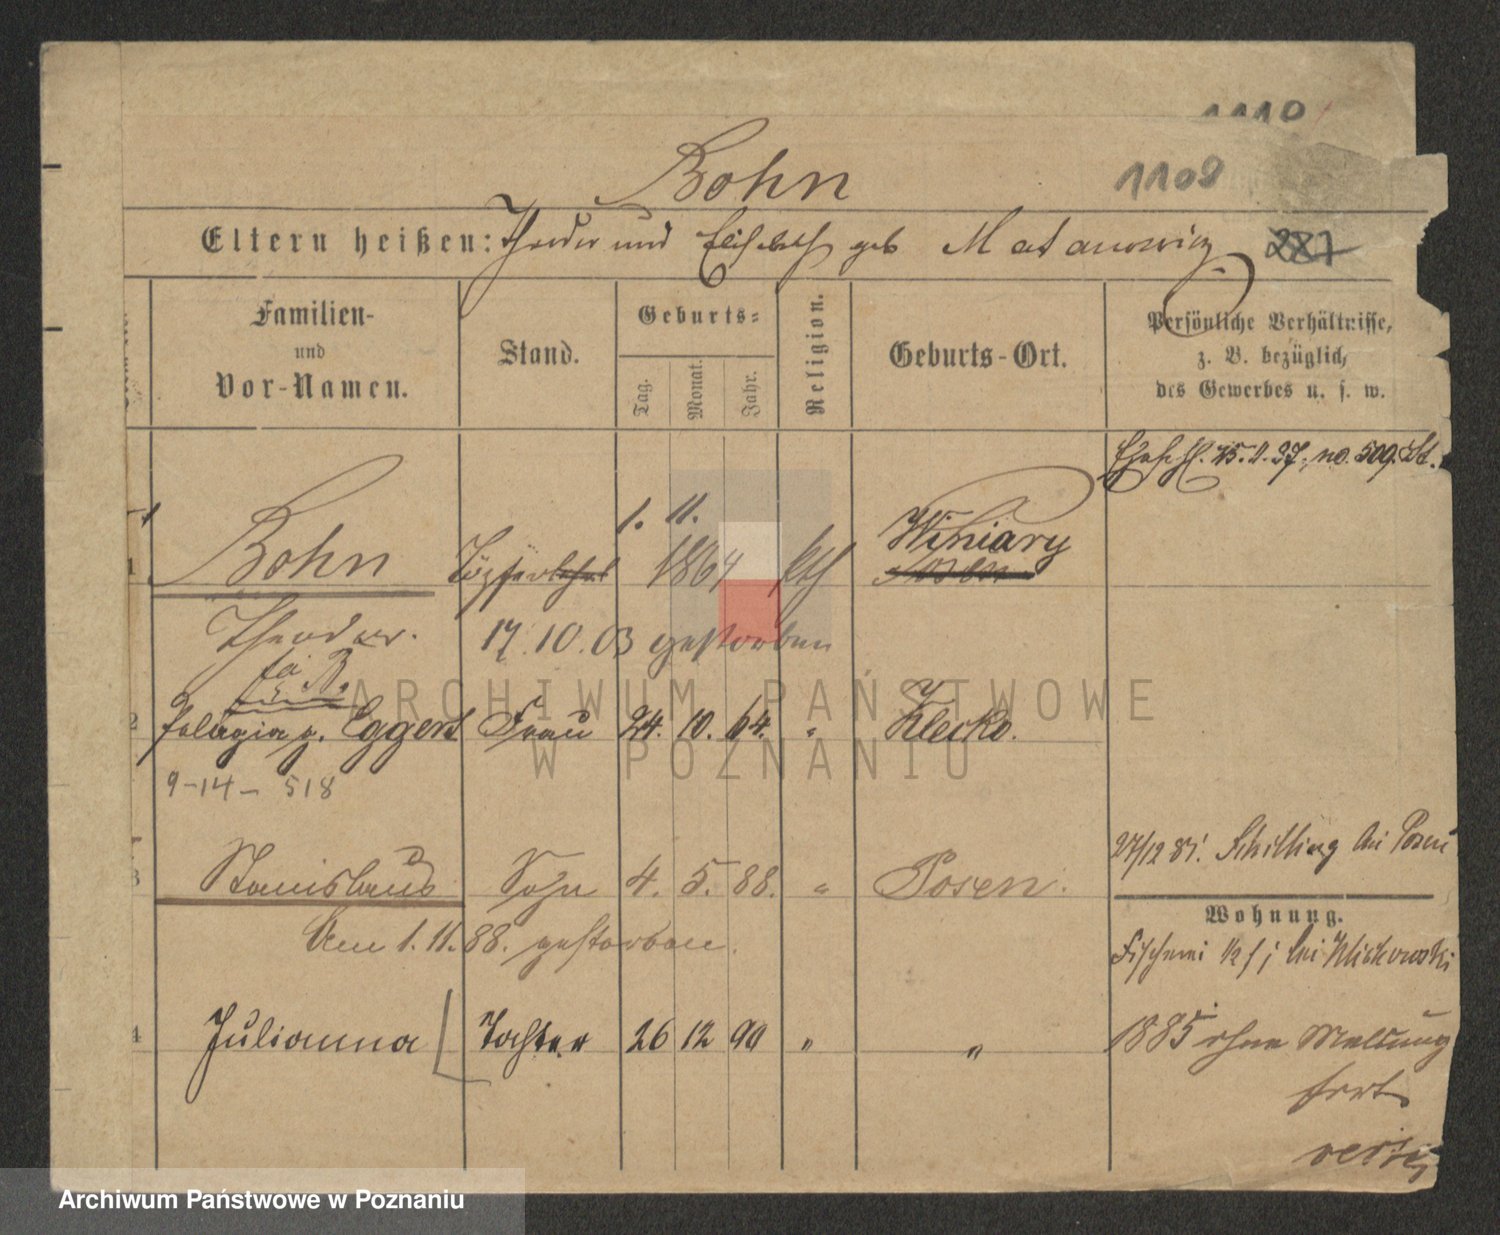 1110
Bohn 1108
Eltern heißen: Theodor und Elisabeth geb Matanowicz 287
Familien-
und
Vor-Namen.
Stand.
Geburts-
Tag. Monat. Jahr.
Religion.
Geburts-Ort.
Persönliche Verhältnisse,
z. B. bezüglich
des Gewerbes u. s. w.
no. 509. St.
1. 11.
1 Bohn Töpferlehrl 1864 kth Winiary
Posen
Theodor. 17.10.03 gestorben
2 Pelagia g. Eggert Frau 24. 10. 64. " Klecko.
9-14- 518
27/12 81. Schilling bei Posen
3 Stanislaus Sohn 4. 5. 88. " Posen.
Am 1. 11. 88. gestorben.
Wohnung.
Fischerei bei
4 Julianna Tochter 26 12 90 " "
1885 ohne Meldung
fort
ARCHIWUM PAŃSTWOWE
W POZNANIU
Archiwum Państwowe w Poznaniu